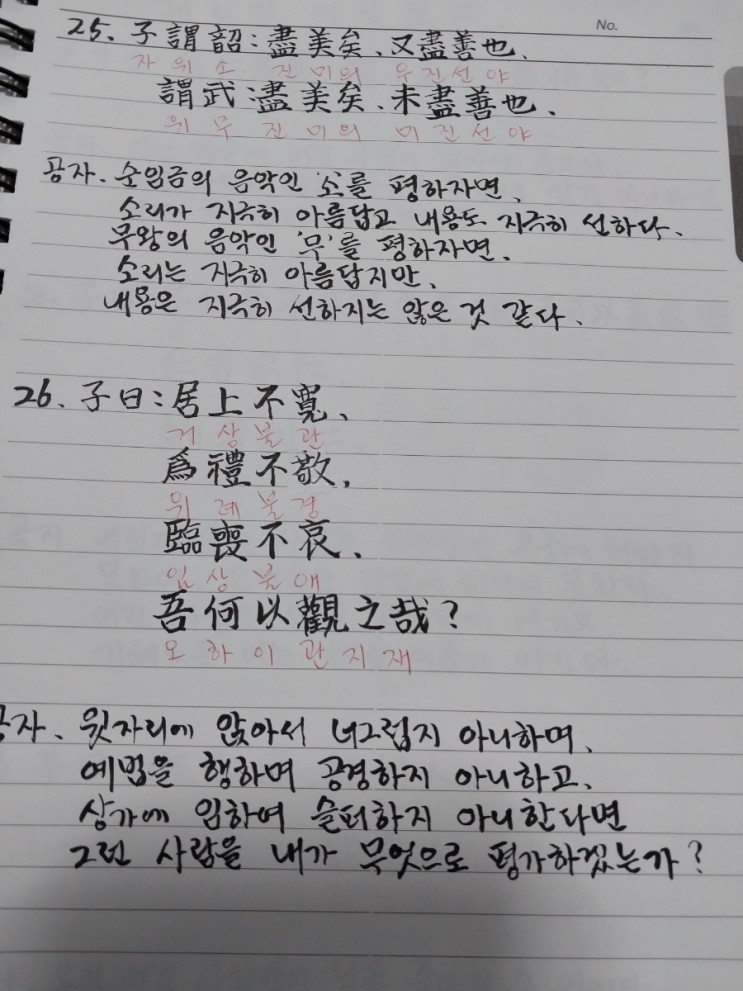 No.
25. 子謂韶: 盡美矣、又盡善也、
자 위 소 진 미 의 우 진 선 야
謂武: 盡美矣、未盡善也、
위 무 진 미 의 미 진 선 야
공자. 순임금의 음악인 '소'를 평하자면,
소리가 지극히 아름답고 내용도 지극히 선하다.
무왕의 음악인 '무'를 평하자면,
소리는 지극히 아름답지만,
내용은 지극히 선하지는 않은 것 같다.
26. 子曰: 居上不寬、
거 상 불 관
爲禮不敬,
위 례 불 경
臨喪不哀、
임 상 불 애
吾何以觀之哉?
오 하 이 관 지 재
공자. 윗자리에 앉아서 너그럽지 아니하며,
예법을 행하며 공경하지 아니하고,
상가에 임하여 슬퍼하지 아니한다면
그런 사람을 내가 무엇으로 평가하겠는가?